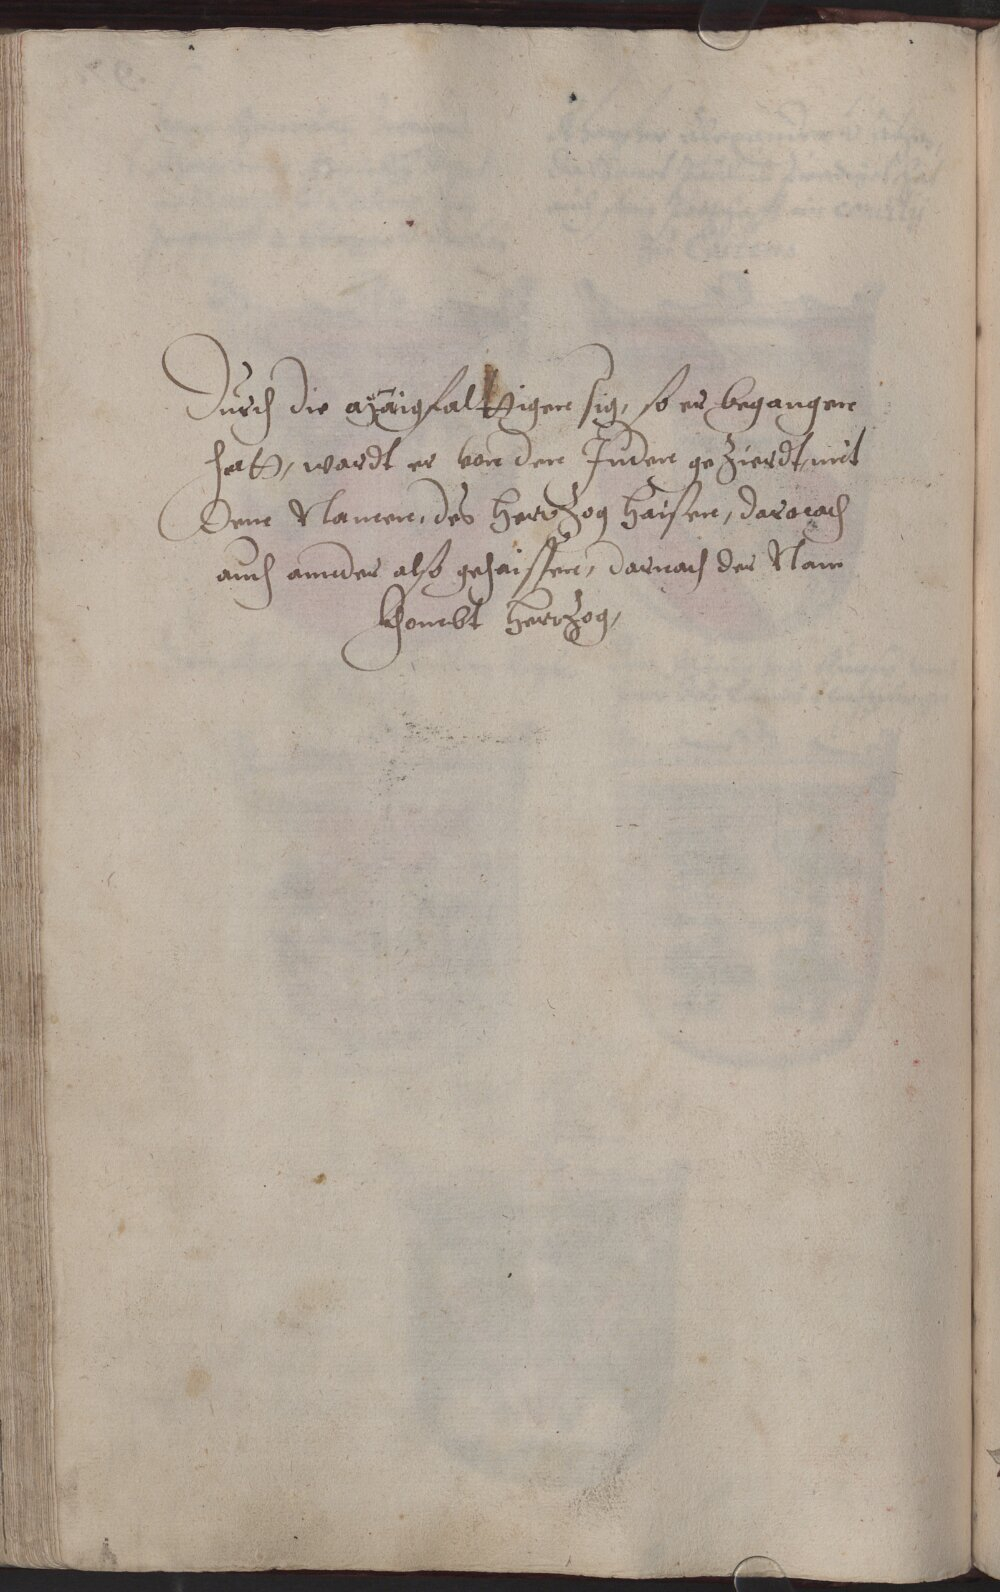 Durch die manigfalttigen sig, so er begangen
hatt, wardt er von den Juden geZierdt, mit
Dem Namen, des HerrZog Haisen, darnach
auch annder also gehaissen, darnach der Nam
khombt HerrZog,